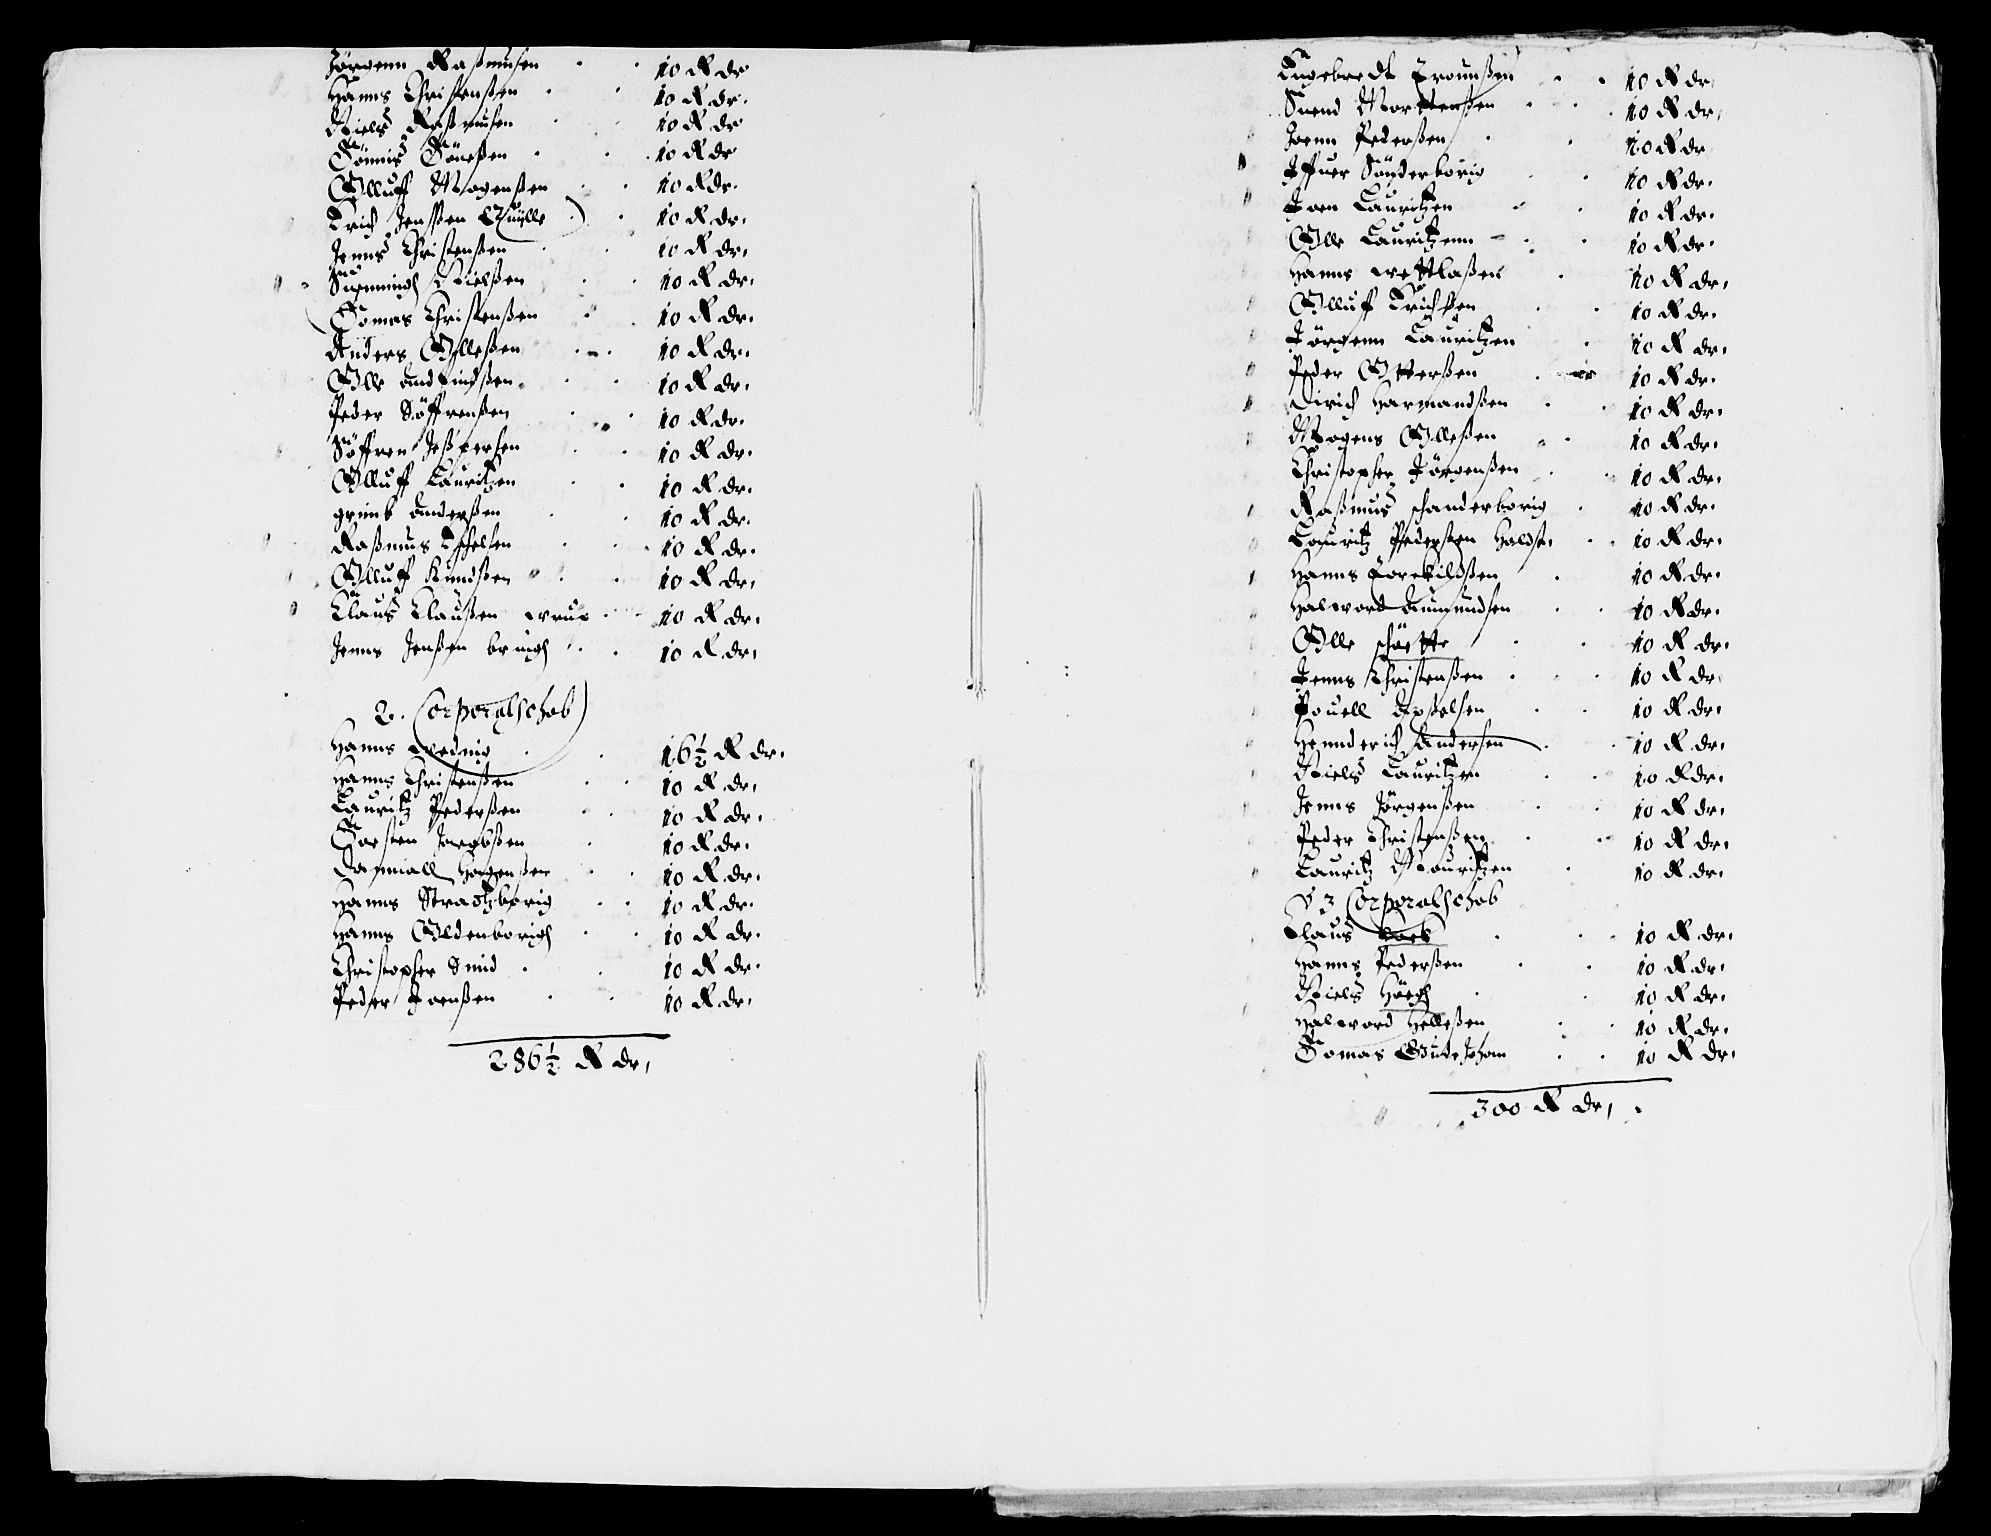 Jörgenn Raßmusen 10 R dr
Hanns Christenßen 10 R dr.
Niels Raßmusen 10 R dr
Tönnis Töneßen 10 R dr
Olluff Mogenßen 10 R dr.
Erich Jenßen 10 R dr.
Jenns Christenßen 10 R dr.
Nielßen 10 R dr.
Tomas Christenßen 10 R dr.
Anders Olleßen 10 R dr.
Olle Amundßen 10 R dr.
Peder Söffrenßen 10 R dr.
Söffren Jeßpersen 10 R dr.
Olluff Lauritzen 10 R dr.
grimb Anderßen 10 R dr.
Raßmus 10 R dr.
Olluff Kundßen 10 R dr.
Claus Claußen 10 R dr.
Jenns Jenßen 10 R dr.
2. Corporalschab
Hanns 16½ R dr.
Hanns Christenßen 10 R dr.
Lauritz Pederßen 10 R dr.
Torsten Jacobßen 10 R dr.
Danniall 10 R dr.
Hanns 10 R dr.
Hanns Oldenborigh 10 R dr.
Christopher Smid 10 R dr.
Peder Joenßen 10 R dr.
286½ R dr.
Engebredt 10 R dr
Suend Mortenßen 10 R dr.
Joenn Pederßen 10 R dr
Iffuer Sönderborig 10 R dr.
Joen Lauritzen 10 R dr.
Olle Lauritzenn 10 R dr.
Hanns 10 R dr.
Olluff Erichßen 10 R dr.
Jörgenn Lauritzen 10 R dr.
Peder Otterßen 10 R dr.
Dirich Harmandßen 10 R dr.
Mogens Olleßen 10 R dr.
Christopher Jörgenßen 10 R dr.
Raßmus schanderborig 10 R dr.
Lauritz Pederßen 10 R dr.
Hanns Torekildßen 10 R dr.
Halword Aumundsen 10 R dr.
Olle 10 R dr.
Jenns Christenßen 10 R dr.
Pouell 10 R dr.
Hennderich Andersen 10 R dr.
Niels Lauritzen 10 R dr.
Jenns Jörgenßen 10 R dr.
Peder Christenßen 10 R dr.
Lauritz Mouritzen 10 R dr.
3 Corporalschab
Claus 10 R dr.
Hanns Pederßen 10 R dr.
Niels Höegh 10 R dr.
Halword Helleßen 10 R dr.
Tomas 10 R dr.
300 R dr.